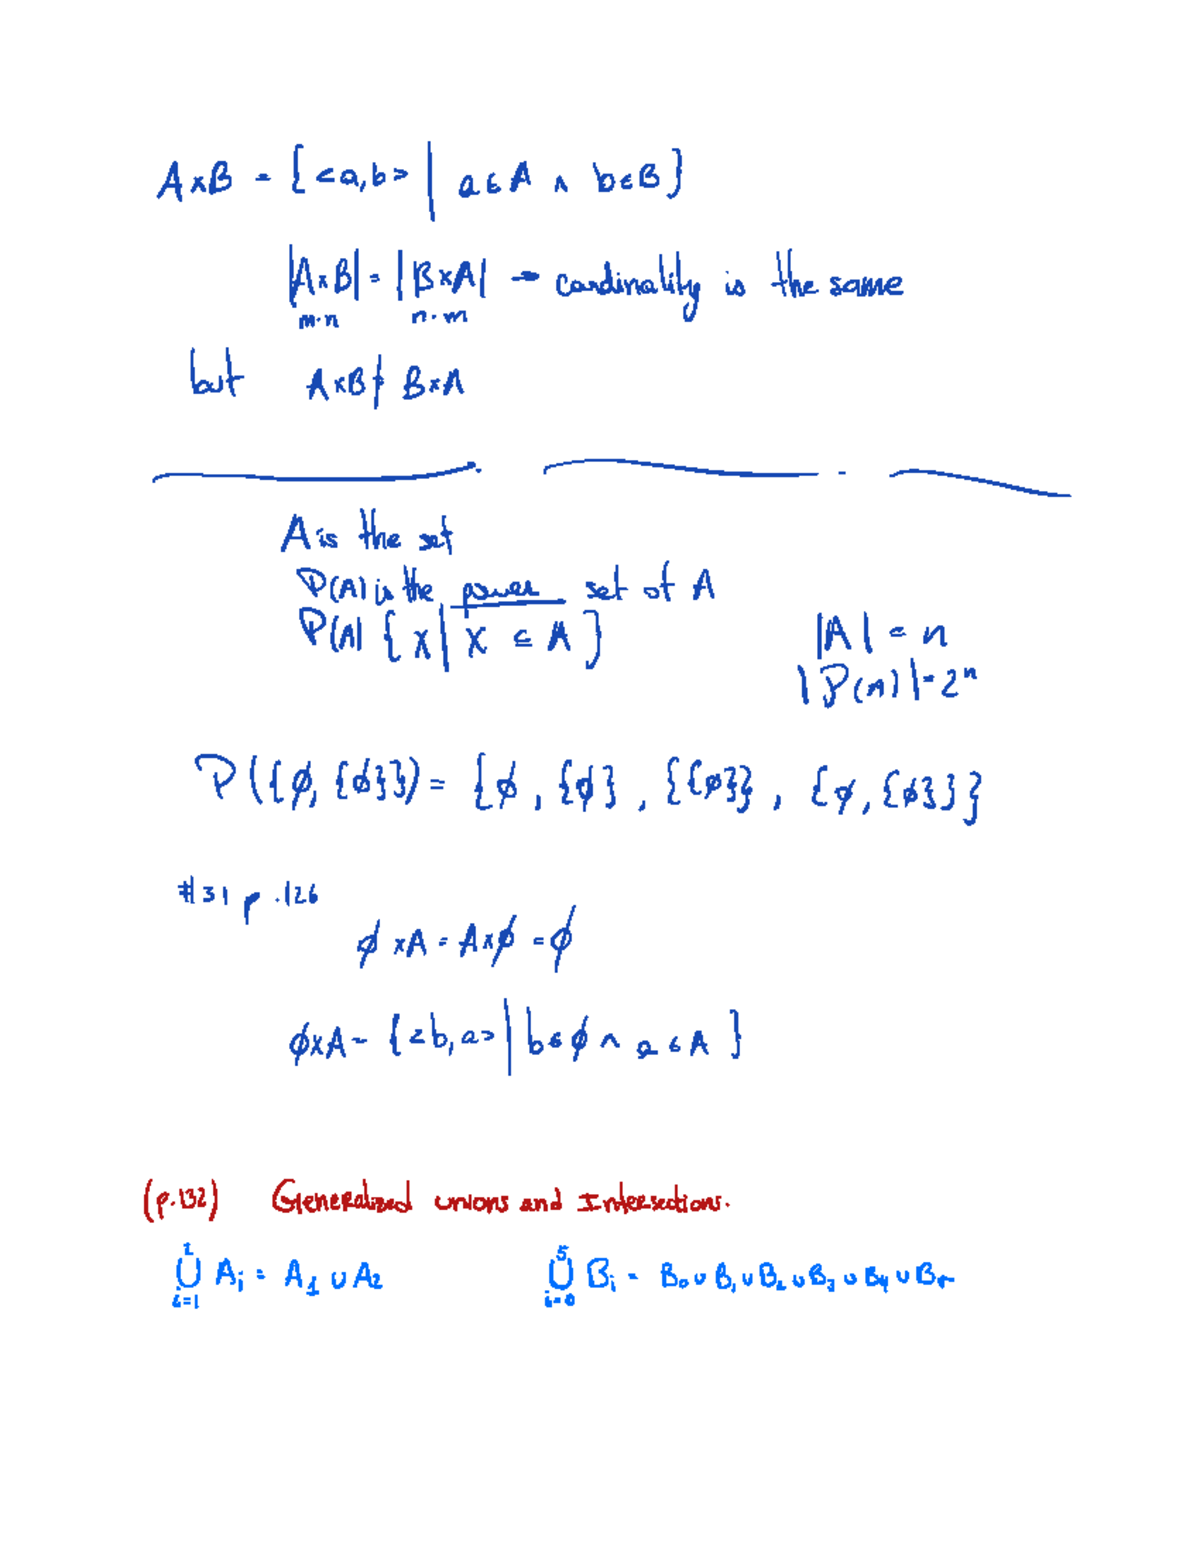 A×B = {<a,b> | a∈A ∧ b∈B}
|A×B| = |B×A| → cardinality is the same
m·n n·m
but A×B ≠ B×A
A is the set
P(A) is the power set of A
P(A) { X | X ⊆ A }
|A| = n
|P(A)| = 2ⁿ
P({∅, {∅}}) = {∅, {∅}, {{∅}}, {∅, {∅}}}
#31 p.126
∅×A = A×∅ = ∅
∅×A = {<b,a> | b∈∅ ∧ a∈A }
(p.132) Generalized unions and Intersections.
2 5
∪ Aᵢ = A₁ ∪ A₂ ∪ Bᵢ = B₀∪B₁∪B₂∪B₃∪B₄∪B₅
i=1 i=0